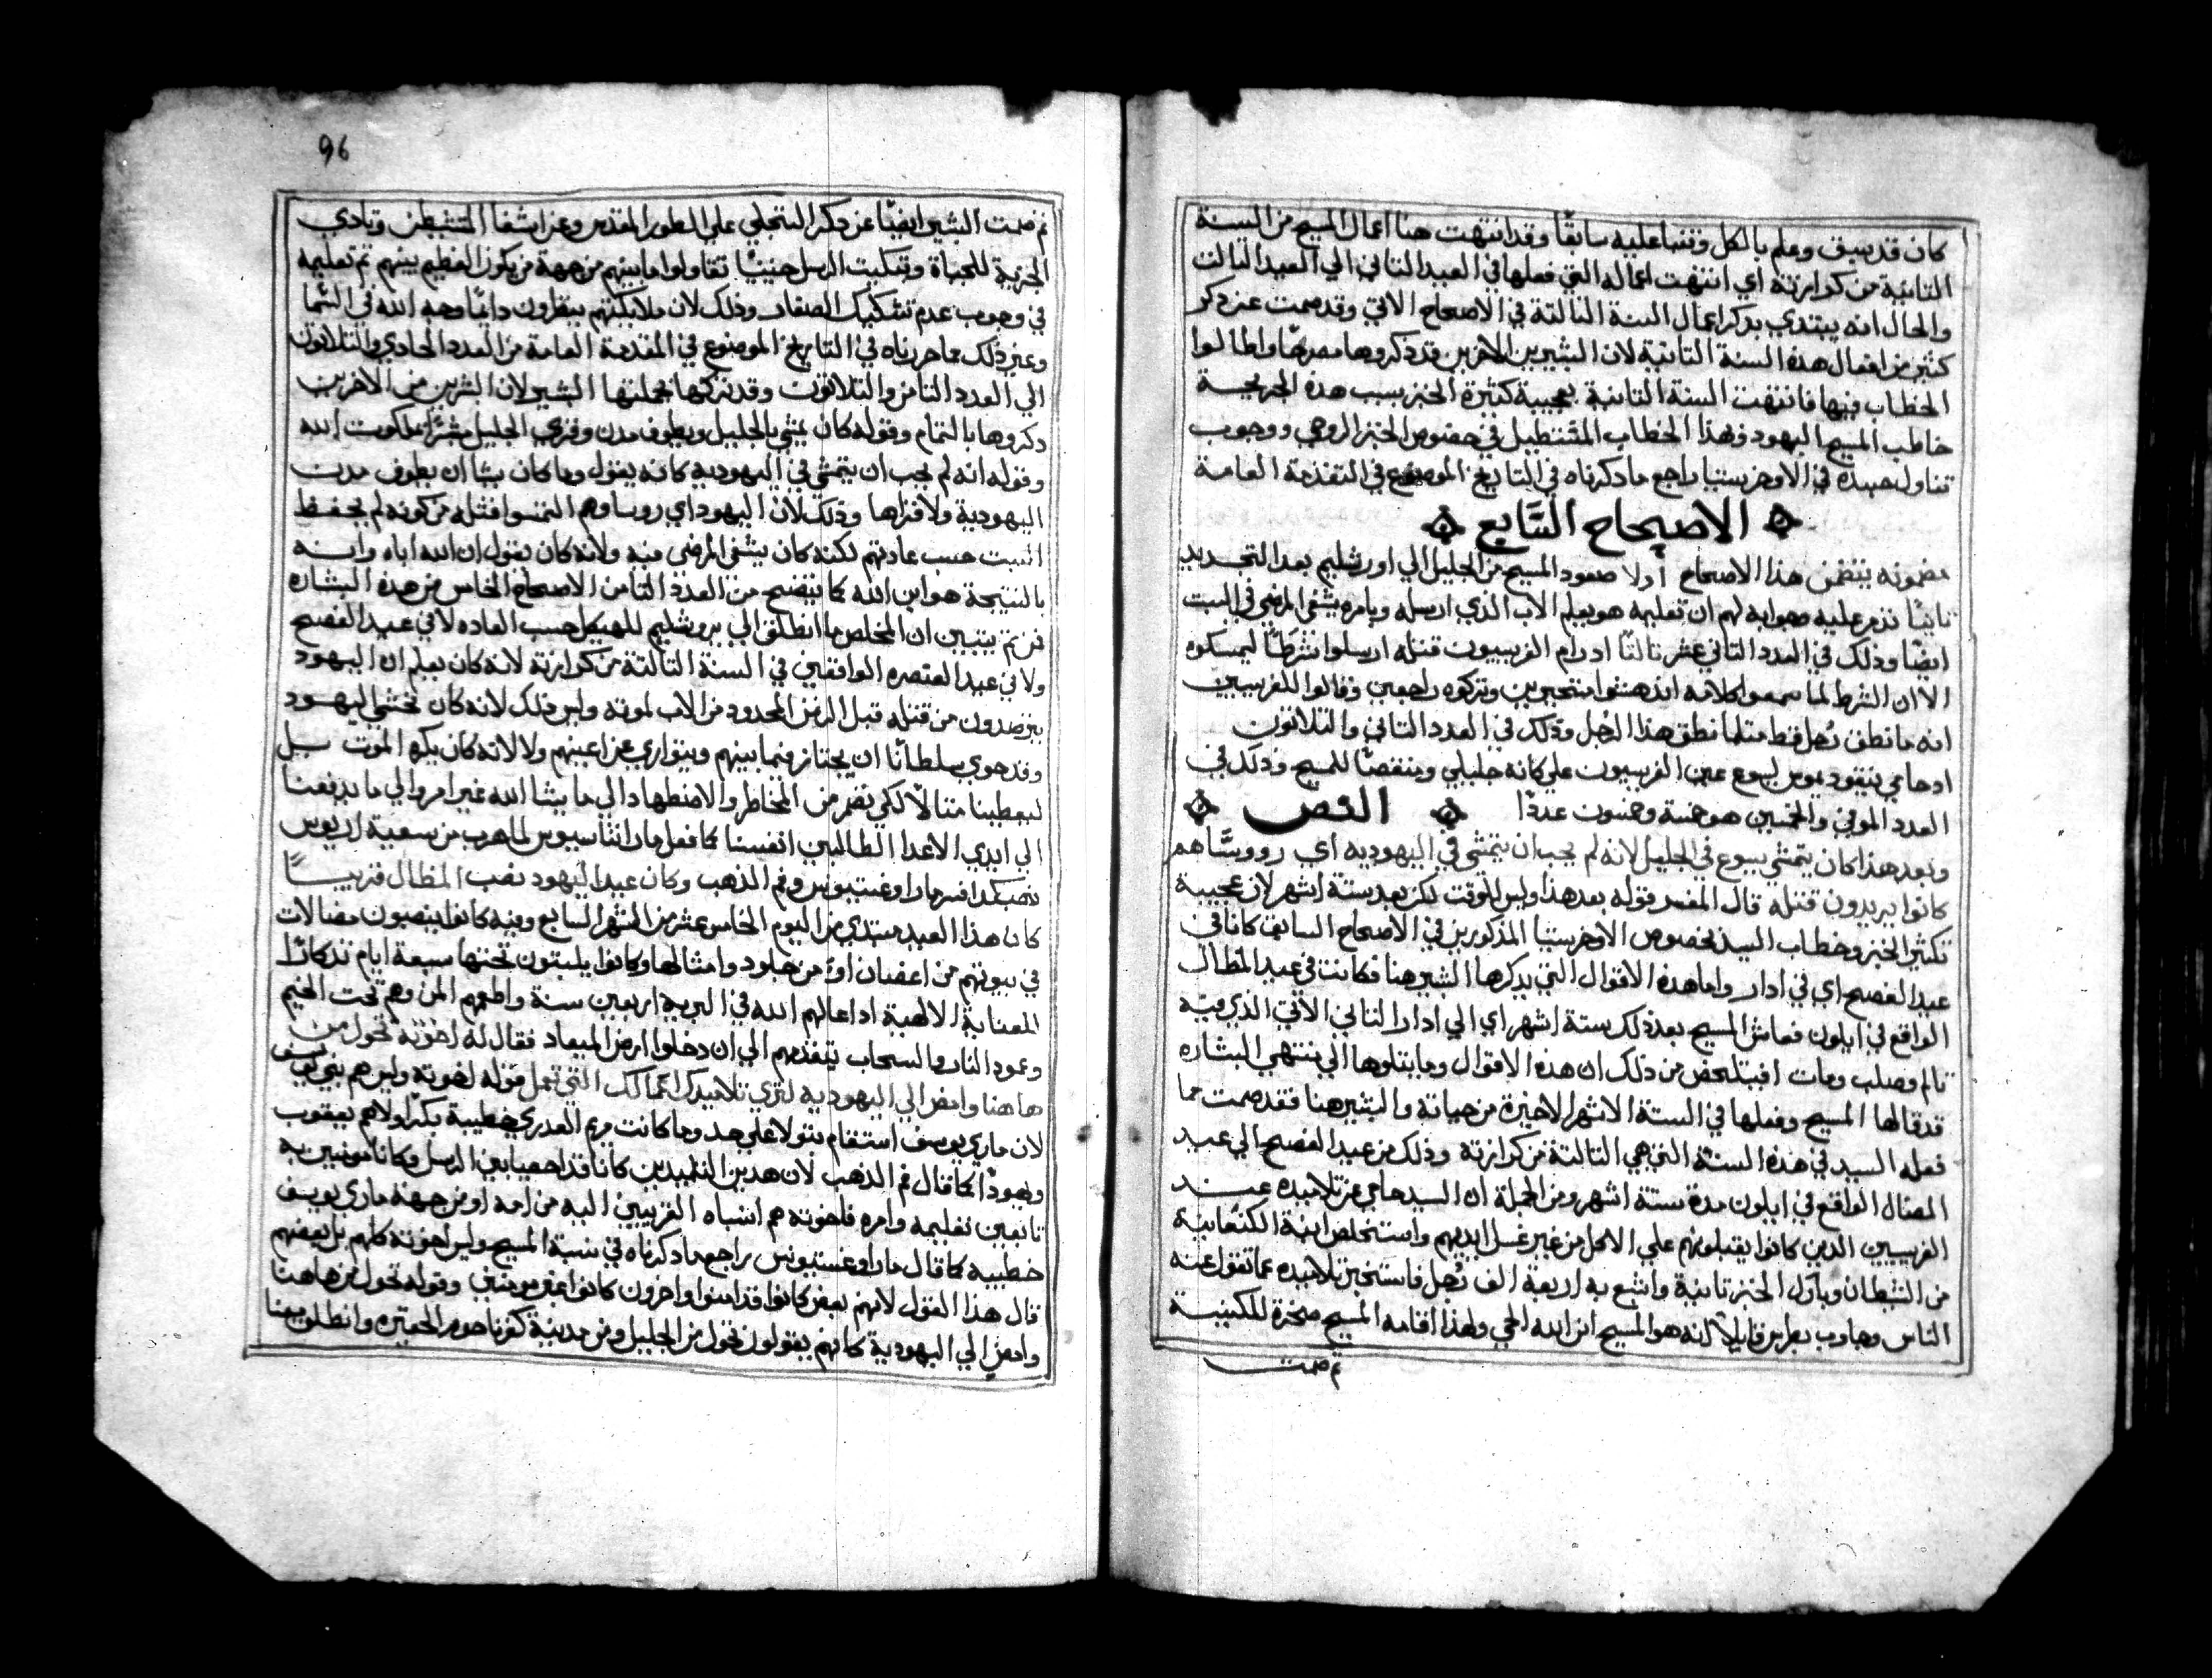 كان قد سبق وعلم بالكل وتنبا عليه سابقًا وقد انتهت هنا اعمال المسيح من السنة
التانية من كرازته اي انتهت اعماله التي فعلها في العيد التاني الي العيد التالت
والحال انه يبتدي بدكر اعمال السنة التالتة في الاصحاح الاتي وقد صمت عن دكر
كثير من افعال هذه السنة التانية لان البشيرين الاخرين قد دكروها مصرحًا واطالوا
الخطاب فيها فانتهت السنة التانية بعجيبة كثيرة الخبز بسبب هذه الجريحة
خاطب المسيح اليهود فهذا الخطاب المستطيل في خصوص الخبز الروحي ووجوب
تناول جسده في الاوخرستيا راجع ما دكرناه في التاريخ الموضوع في التقدمة العامة
الاصحاح السَّابع
مضمونه يتضمن هذا الاصحاح اولا صعود المسيح من الجليل الي اورشليم بعد التجديد
تانيًا تذمر عليه وجوابه لهم ان تعليمه هو تعليم الاب الذي ارسله وبامره يشفي المرضي في السبت
ايضًا وذلك في العدد التاني عشر تالتًا اد رام الفريسيون قتله ارسلوا شرطًا ليمسكوه
الا ان الشرط لما سمعوا كلامه اندهشوا متحيرين وتركوه راجعين وقالوا للفريسيين
انه ما نطق رُجل قط متلما نطق هذا الرجل وذلك في العدد التاني والتلاتون
اد حامي نيقوديموس ليسوع عير الفريسيون علي كانه جليلي ومنقصًا للمسيح وذلك في
العدد الموفي والخمسين هو خمسة وخمسون عددًا النص
وبعد هذا كان يتمشي يسوع في الجليل لانه لم يجب ان يتمشي في اليهودية اي رووسَّاهم
كانوا يريدون قتله قال المفسر قوله بعد هذا وليس للوقت لكن بعد ستة اشهر لان عجيبة
تكثير الخبز وخطاب السيد بخصوص الاوخرستيا المذكورين في الاصحاح السابق كانا في
عيد الفصح اي في ادار واما هذه الاقوال التي يدكرها البشير هنا فكانت في عيد المظال
الواقع في ايلون فعاش المسيح بعد ذلك ستة اشهر اي الي ادار التاني الاتي الذي فيه
تالم وصلب ومات افيتلخص من ذلك ان هذه الاقوال وما يتلوها الي منتهي البشاره
قد قالها المسيح وفعلها في الستة الاشهر الاخيرة من حياته والبشير هنا فقد صمت عما
فعله السيد في هذه السنة التي هي التالتة من كرازته وذلك من عيد الفصح الي عيد
المضال الواقع في ايلون مدة ستة اشهر ومن الجملة ان السيد حامي عن تلاميذه عند
الفريسيين الدين كانوا يقبلونهم علي الاكل من غير غسل ايديهم واستخلص ابنة الكنعانية
من الشيطان وبارك الخبز تانية واشبع به اربعة الف رُجل فاستخبر تلاميذه عما تقول عنه
الناس وجاوب بطرس قايلاً انه هو المسيح ابن الله الحي ولهذا اقامه المسيح صخرة للكنيسة
تم صمت
96
تم صمت البشير ايضًا عن دكر التجلي علي الطور المقدس وعن اشفا المتشيطن وتادي
الجزية للجباة وتبكيت الرسل حينيًا تقاولوا ما بينهم من جهة من يكون العظيم بينهم تم تعليمه
في وجوب عدم تشكيك الصغار وذلك لان ملايكتهم ينظرون دايمًا وجه الله في السما
وغير ذلك مما حررناه في التاريخ الموضوع في المقدمة العامة من العدد الحادي والتلاتون
الي العدد التامن والتلاتون وقد تركها بجملتها البشير لان البشيرين الاخرين
دكروها بالتمام وقوله كان يمشي بالجليل ويطوف مدن وقري الجليل مبشرًا بملكوت الله
وقوله انه لم يجب ان يتمشي في اليهودية كانه يقول وما كان يشا ان يطوف مدن
اليهودية ولا قراها وذلك لان اليهود اي روساوهم التمسوا قتله من كونه لم يحفظ
السبت حسب عادتهم لكنه كان يشفي المرضي فيه ولانه كان يقول ان الله اباه وانه
بالنتيجة هو ابن الله كما يتضح من العدد التامن الاصحاح الخامس من هذه البشاره
فمن تم يتبين ان المخلص ما انطلق الي يروشليم للهيكل حسب العاده لا في عيد الفصح
ولا في عيد العنصره الواقعين في السنة التالتة من كرازته لانه كان يعلم ان اليهود
يترصدون من قتله قبل الزمن المحدود من الاب لموته وليس ذلك لانه كان يخشي اليهود
وقد حوي سلطانًا ان يجتاز فيما بينهم ويتواري عن اعينهم ولا لانه كان يكره الموت بل
ليعطينا متالاً لكي نفر من المخاطر والاضطهاد الي ما يشا الله غير امر والي ما يدفعنا
الي ايدي الاعدا الطالبين انفسنا كما فعل مار اتناسيوس لما هرب من سعية اريوس
هكدا فسر مار اوغستينوس وفم الذهب وكان عيد اليهود نصب المظال قريبًا
كان هذا العيد مبتدي من اليوم الخامس عشر من الشهر السابع وفيه كانوا ينصبون مضالات
في بيوتهم من اغصان او من جلود وامثالها وكانوا يلبتون تحتها سبعة ايام تدكارًا
للعناية الالهية اد اعالهم الله في البرية اربعين سنة واطعهم المن وهم تحت الخيم
وعمود النار والسحاب يتقدمهم الي ان دخلوا ارض الميعاد فقال له اخوته تحول من
هاهنا وامض الي اليهودية لتري تلاميدك اعمالك التي تعمل قوله اخوته وليس هم بني يوسف
لان ماري يوسف استقام بتولا علي حد وما كانت مريم العدري خطيبة بكرًا ولاهم يعقوب
ويهودا كما قال فم الذهب لان هدين التلميدين كانا قد احصيا بين الرسل وكانا مومنين به
تابعين تعليمه وامره فاخوته هم انسباه القريبين اليه من امه او من جهة ماري يوسف
خطيبه كما قال مار اوغستينوس راجع ما دكرناه في نسبة المسيح وليس اخوته كلهم بل بعضهم
قال هذا القول لانهم بعض كانوا قد امنوا واخرون كانوا غير مومنين وقوله تحول من هاهنا
وامض الي اليهودية كانهم يقولون تحول من الجليل ومن مدينة كفرناحوم الحقيره وانطلق بنا